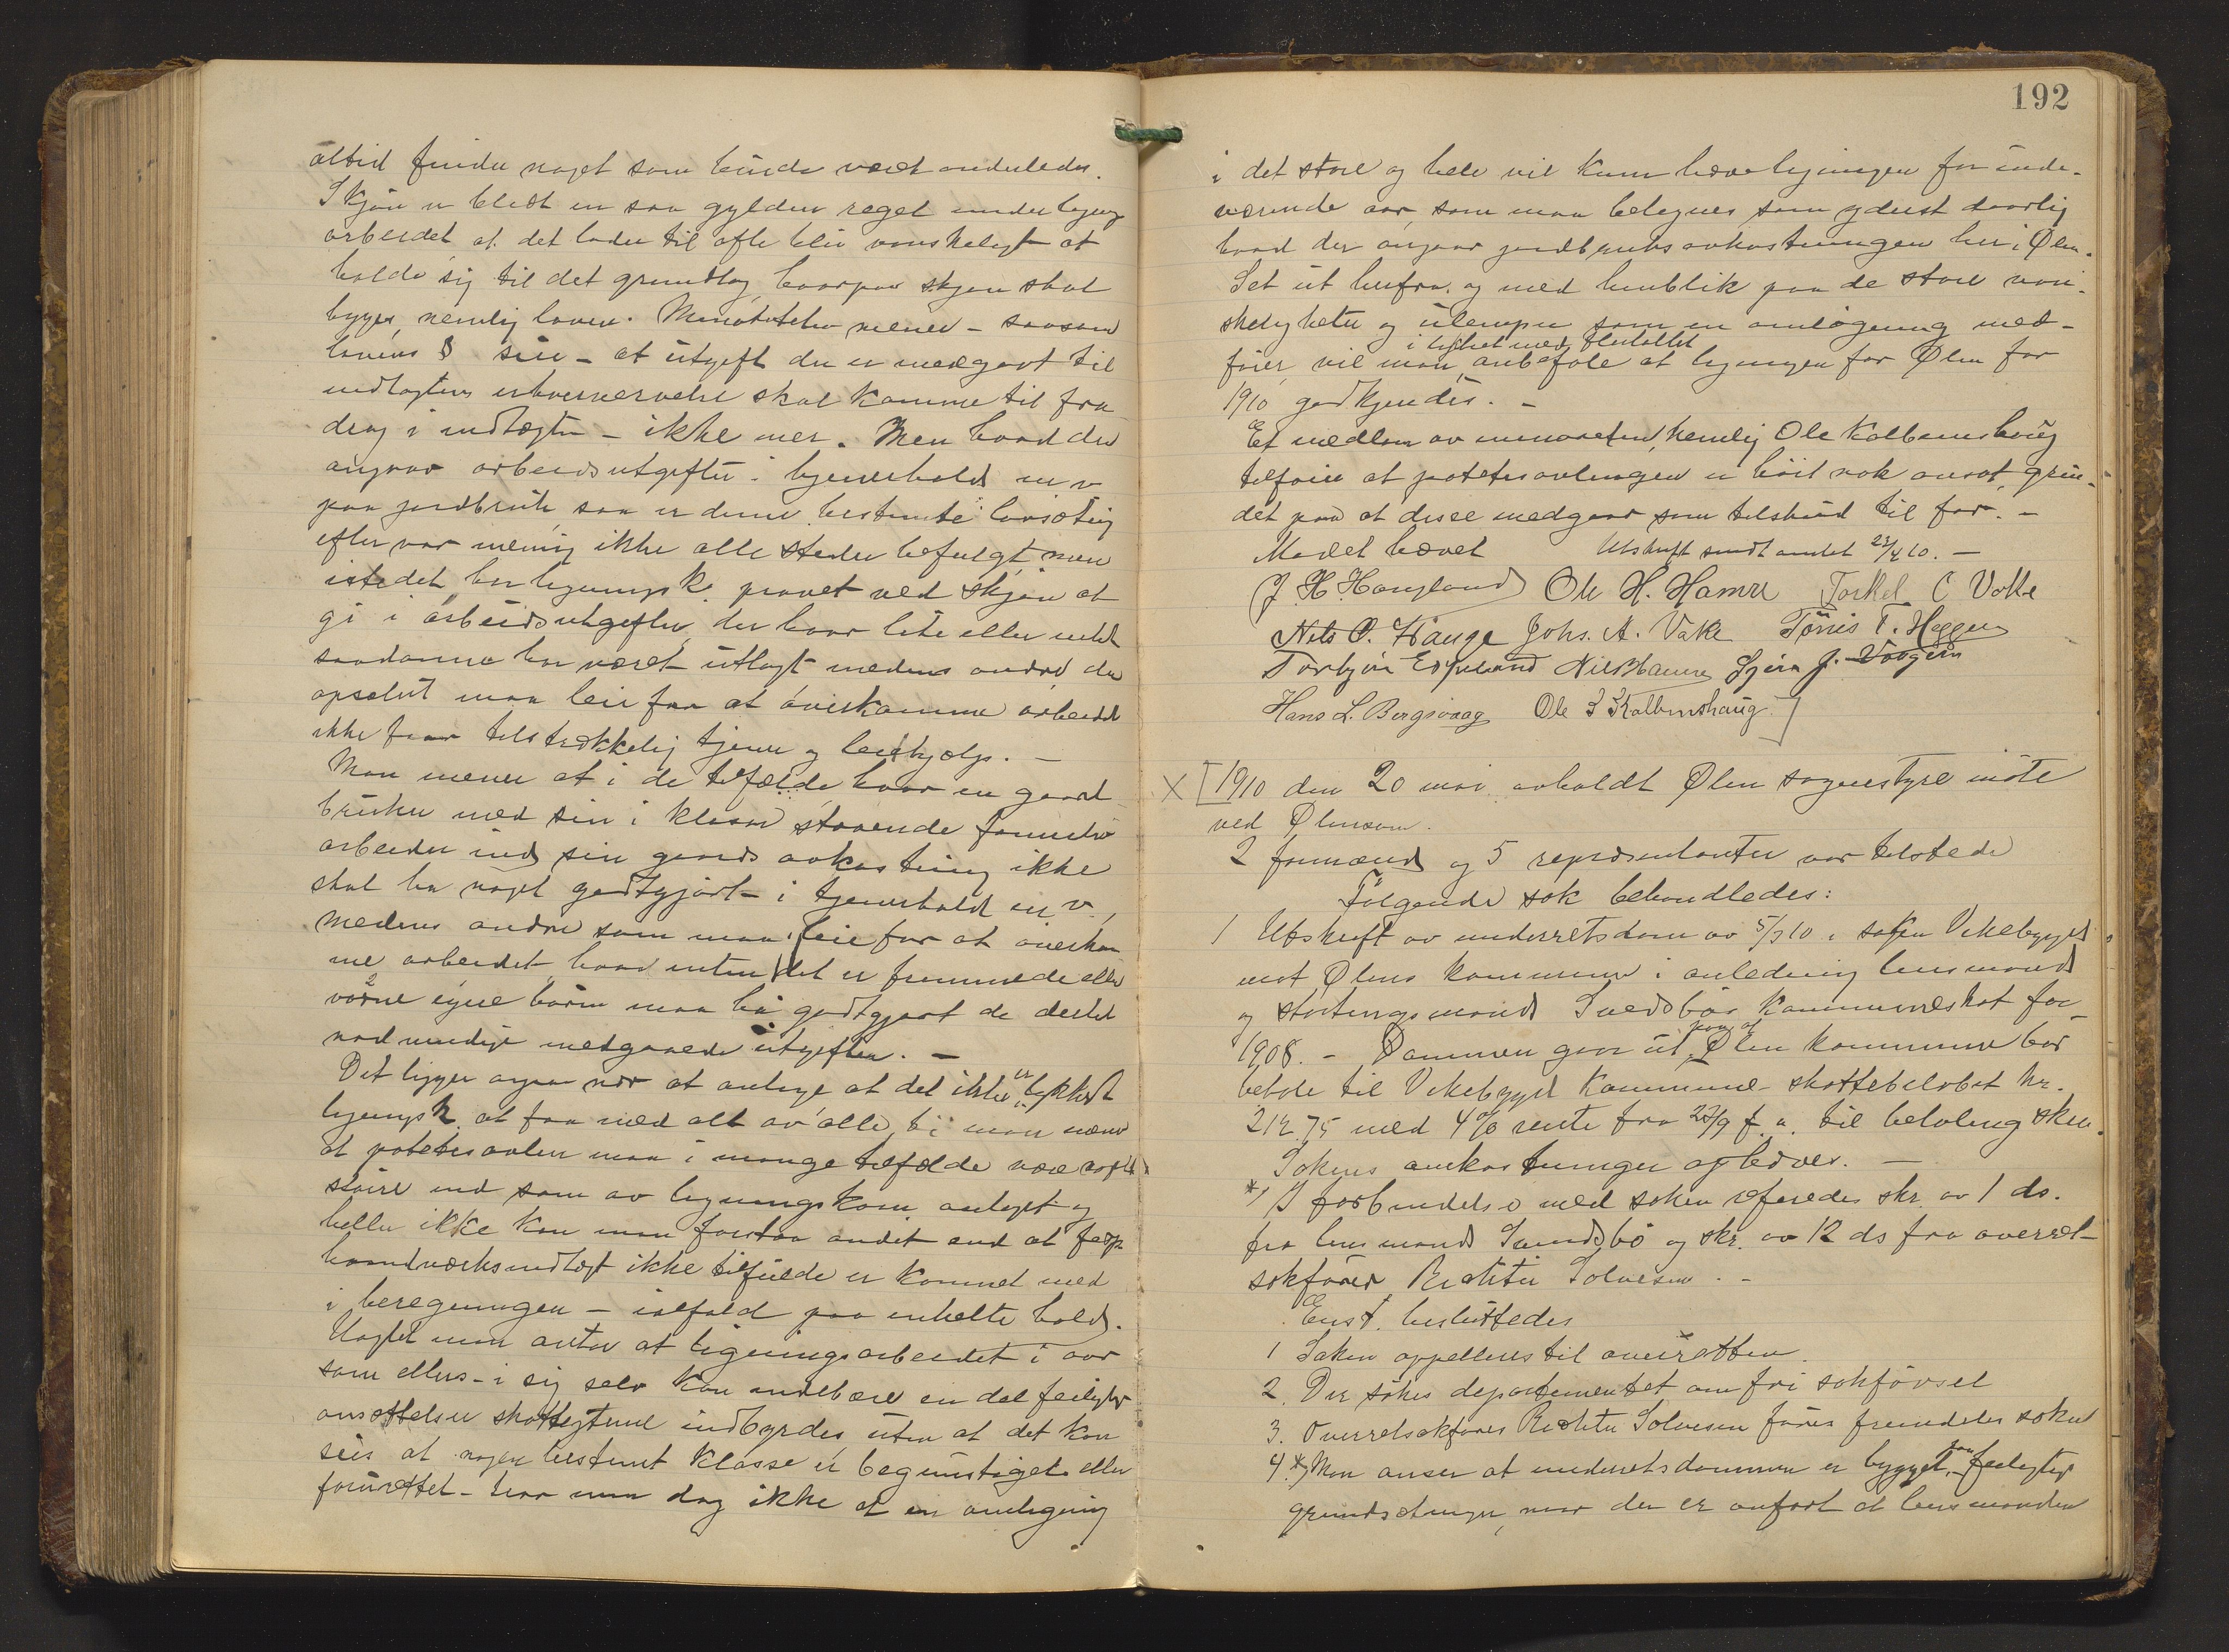 altid finde noget som burde været anderledes.
Skjøn er blit en saa gylden regel under lignings
arbeidet at det lader til ofte blir vanskelegt at
holde sig til det grundlag hvorpaa skjøn skal
bygges, nemlig loven. Minoriteten mener - saasom
lovens § sier - at utgift der er medgaat til
indtægters erhververvelse skal komme til fra
drag i indtægten - ikke mer. Men hvad der
angaar arbeidsutgifter i tjenerhold m v
paa jordbruk saa er denne bestemte lovsætning
efter vor mening ikke alle steder befulgt, men
istedet har ligningsk. prøvet ved skjøn at
gi i arbeidsutgifter der hvor lite eller intet
saadanne har været utlagt medens andre der
apsolut maa leie for at overkomme arbeidet
ikke faar tilstrækkelig tjener og leiehjælp. -
Man mener at i de tilfælde hvor en gaard
bruker med sin i klasse staaende familie
arbeider ind sin gaards avkastning ikke
skal ha noget godtgjort i tjenerhold m v.,
medens andre som maa leie for at overkom
me arbeidet, hvad enten det er fremmede eller
vaksne egne børn maa ha godtgjort de dertil
nødvendige medgaaede utgifter. -
Det ligger ogsaa nær at antage at det ikke er lykkedes
ligningsk. at faa med alt av alle, ti man mener
at potetesavlen maa i mange tilfælde være noget
større end som av ligningskom antaget og
heller ikke kan man forstaa andet end at
haandverksindtægt ikke tilfulde er kommet med
i beregningen - ialfald paa enkelte hold.
Uagtet man antar at ligningsarbeidet i aar
som ellers - i sig selv kan indebære en del feilagtige
ansættelser skatteyterne indbyrdes, uten at det kan
sies at nogen bestemt klasse er begunstiget eller
forurettet - tror man dog ikke at en omligning
192
i det store og hele vil kunne hæve ligningen for inde-
værende aar som maa betegnes som yderst daarlig
hvad der angaar jordbruksavkastningen her i Ølen.
Set ut herfra og med henblik paa de store van-
skeligheter og ulemper som en omligning med-
i likhet med flertallet
fører vil man anbefale at ligningen for Ølen for
1910 godkjendes. -
Et medlem av minoriteten, nemlig Ole Kalbenshaug
tilføier at potetesavlingen er høit nok ansat, grun-
det paa at disse medgaar som tilskud til for. -
Møtet hævet Utskrift sendt amtet 23/4 10. -
J. H. Haugland Ole H. Hamre Torkel C Vakse
Nils O. Hauge Johs. A. Vake Tønnes T. Heggen
Torbjørn Espeland Nils Hamre J. Vaagen
Hans L. Bergsvaag Ole S Kalbenshaug
X [1910 den 20 mai avholdt Ølen sognestyre møte
ved Ølensøen.
2 formænd og 5 repræsentanter var tilstede
Følgende sak behandledes:
1 Utskrift av underretsdom av 5/3 10 i saken Vikebygd
mot Ølens kommune i anledning lensmand
og stortingsmand Svendsbøs kommuneskat for
1908. - Dommen gaar ut paa at Ølen kommune bør
betale til Vikebygd kommune - skattebeløbet kr.
212.75 med 4% rente fra 27/9 f. a. til betaling sker.
Sakens omkostninger ophæves. -
* I forbindelse med saken refereredes skr. av 1 ds.
fra lensmand Svendsbø og skr. av 12 ds fra overret-
sakfører Richter Solvesen. -
Enst. besluttedes
1 Saken appelleres til overretten.
2. Der søkes departementet om fri sakførsel
3. Overretsakfører Richter Solvesen fører fremdeles saken
4 * Man anser at underretsdommen er bygget paa feilagtige
grundsætninger, naar der er anført at lensmanden